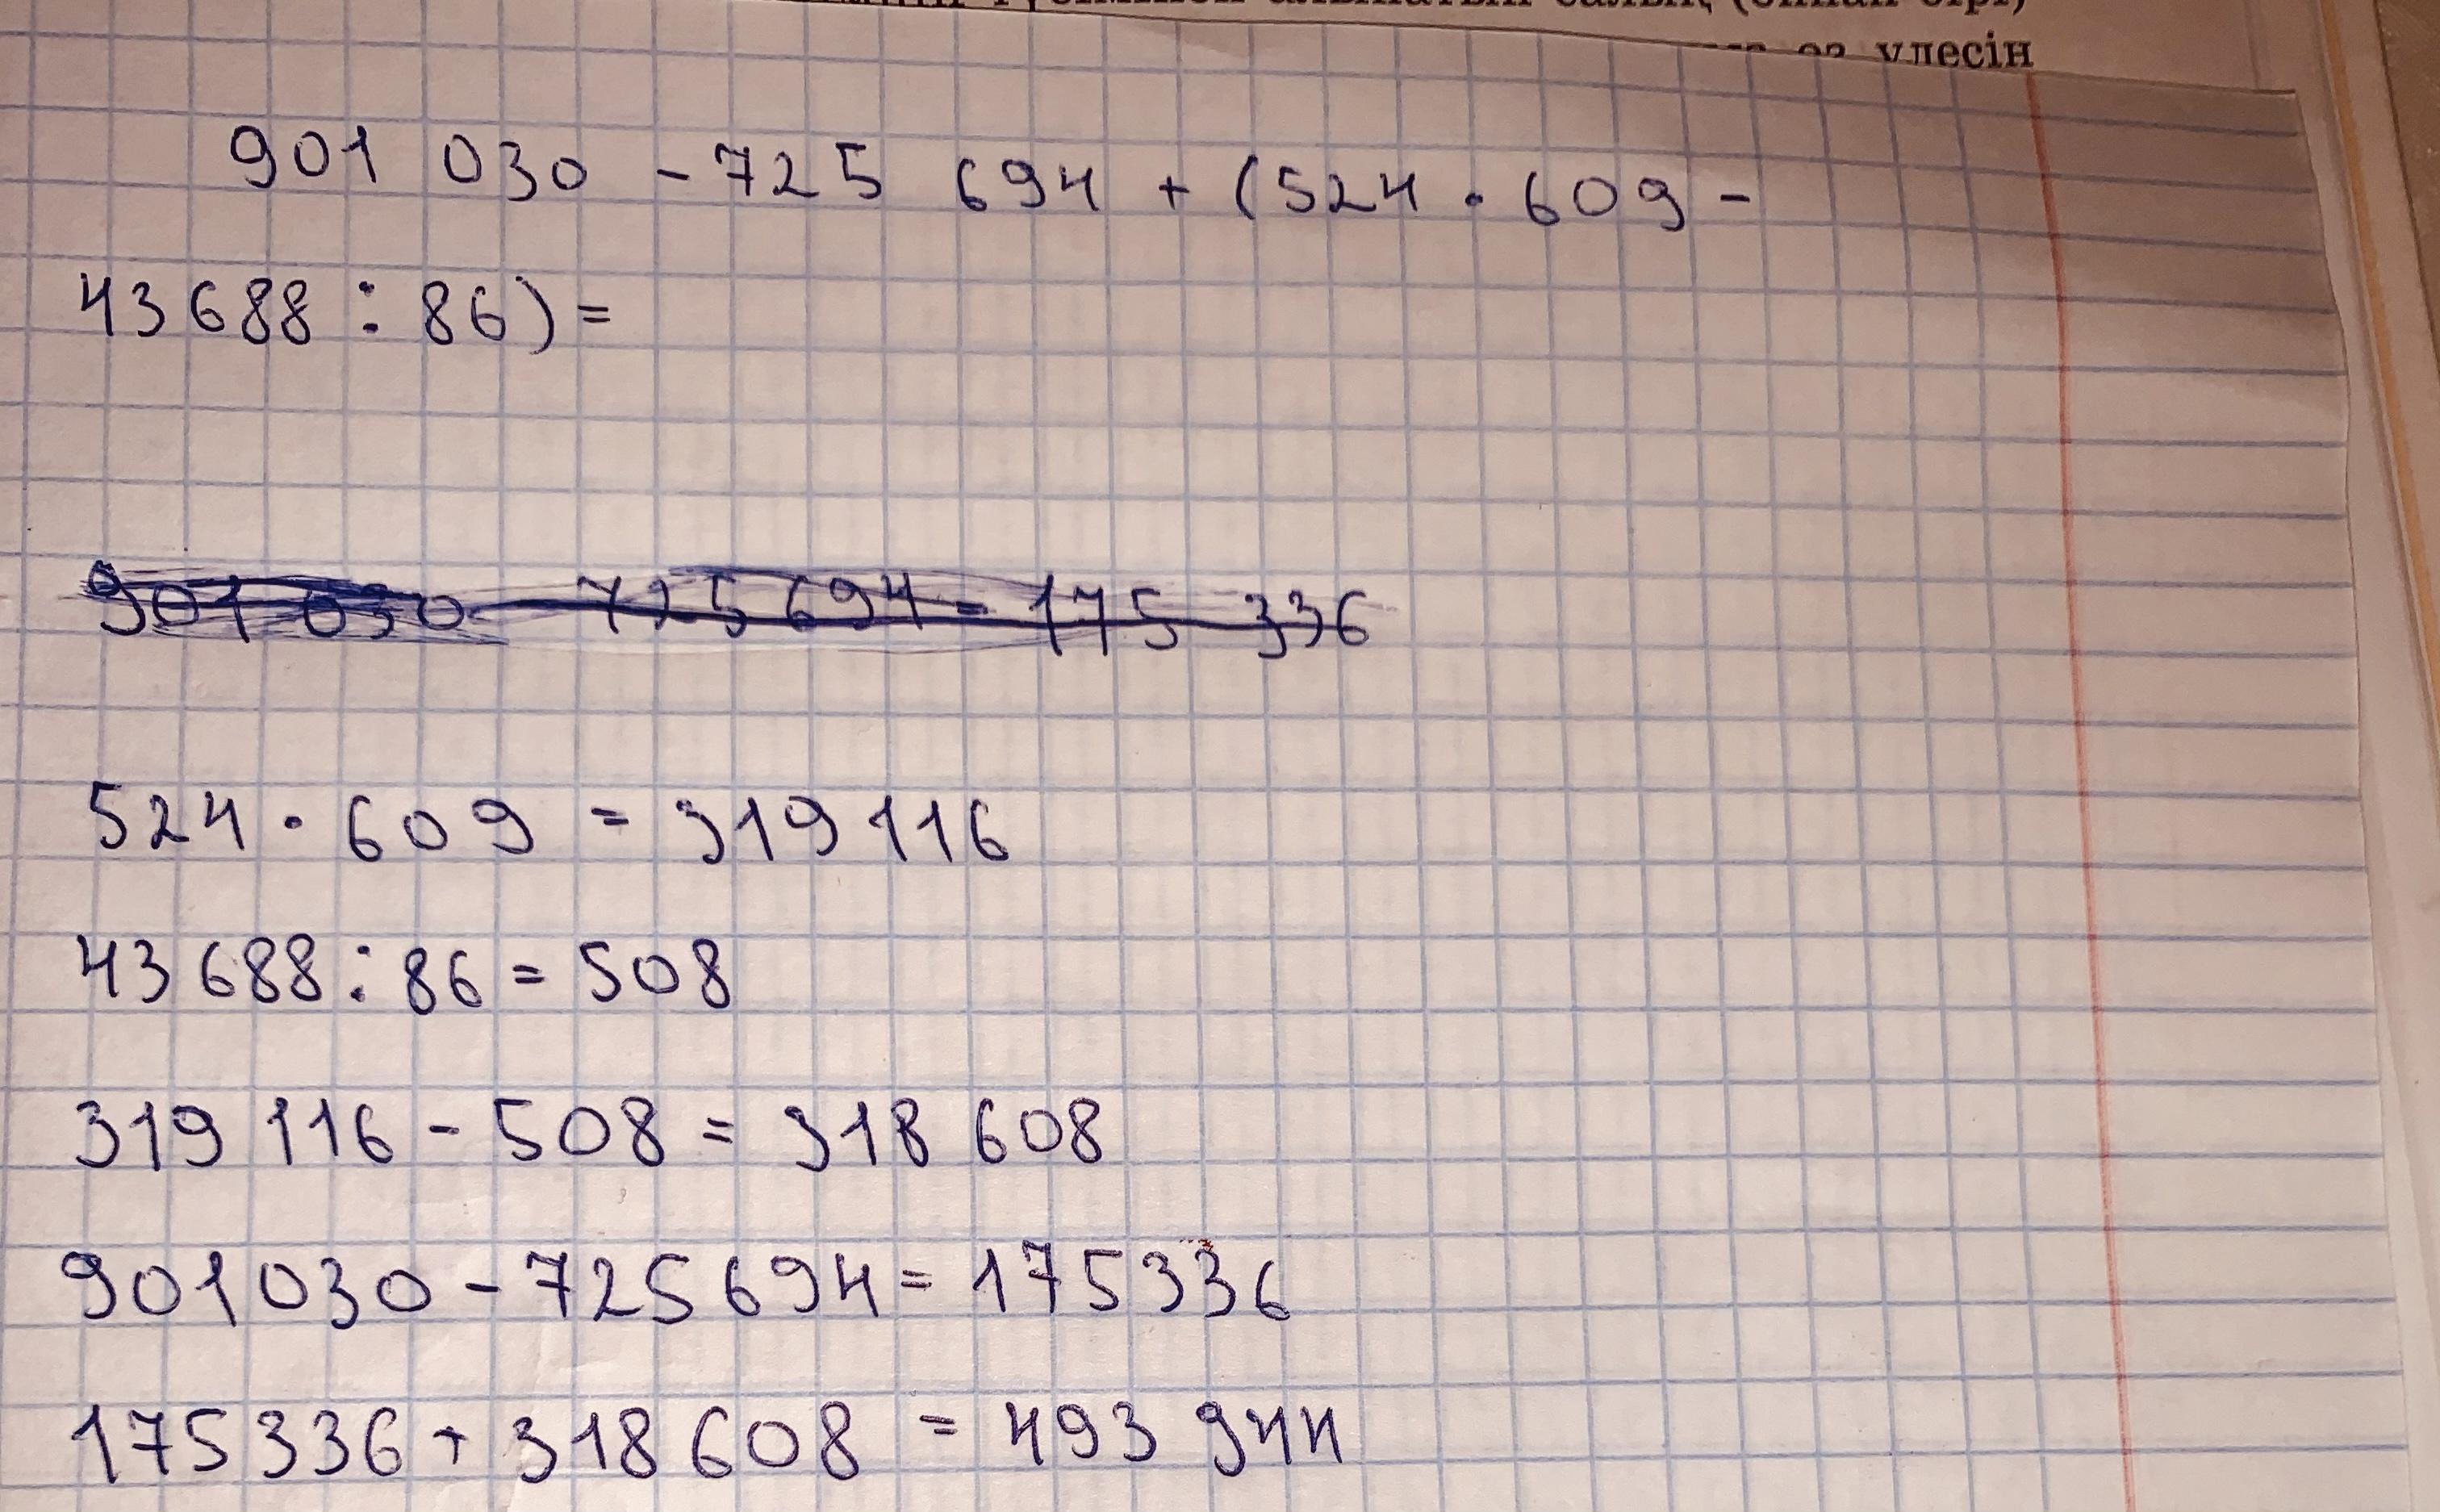 үлесін
901 030 - 725 694 + (524 · 609 -
43688 : 86) =
901 030 - 725 694 = 175 336
524 · 609 = 319 116
43 688 : 86 = 508
319 116 - 508 = 318 608
901 030 - 725 694 = 175 336
175 336 + 318 608 = 493 944